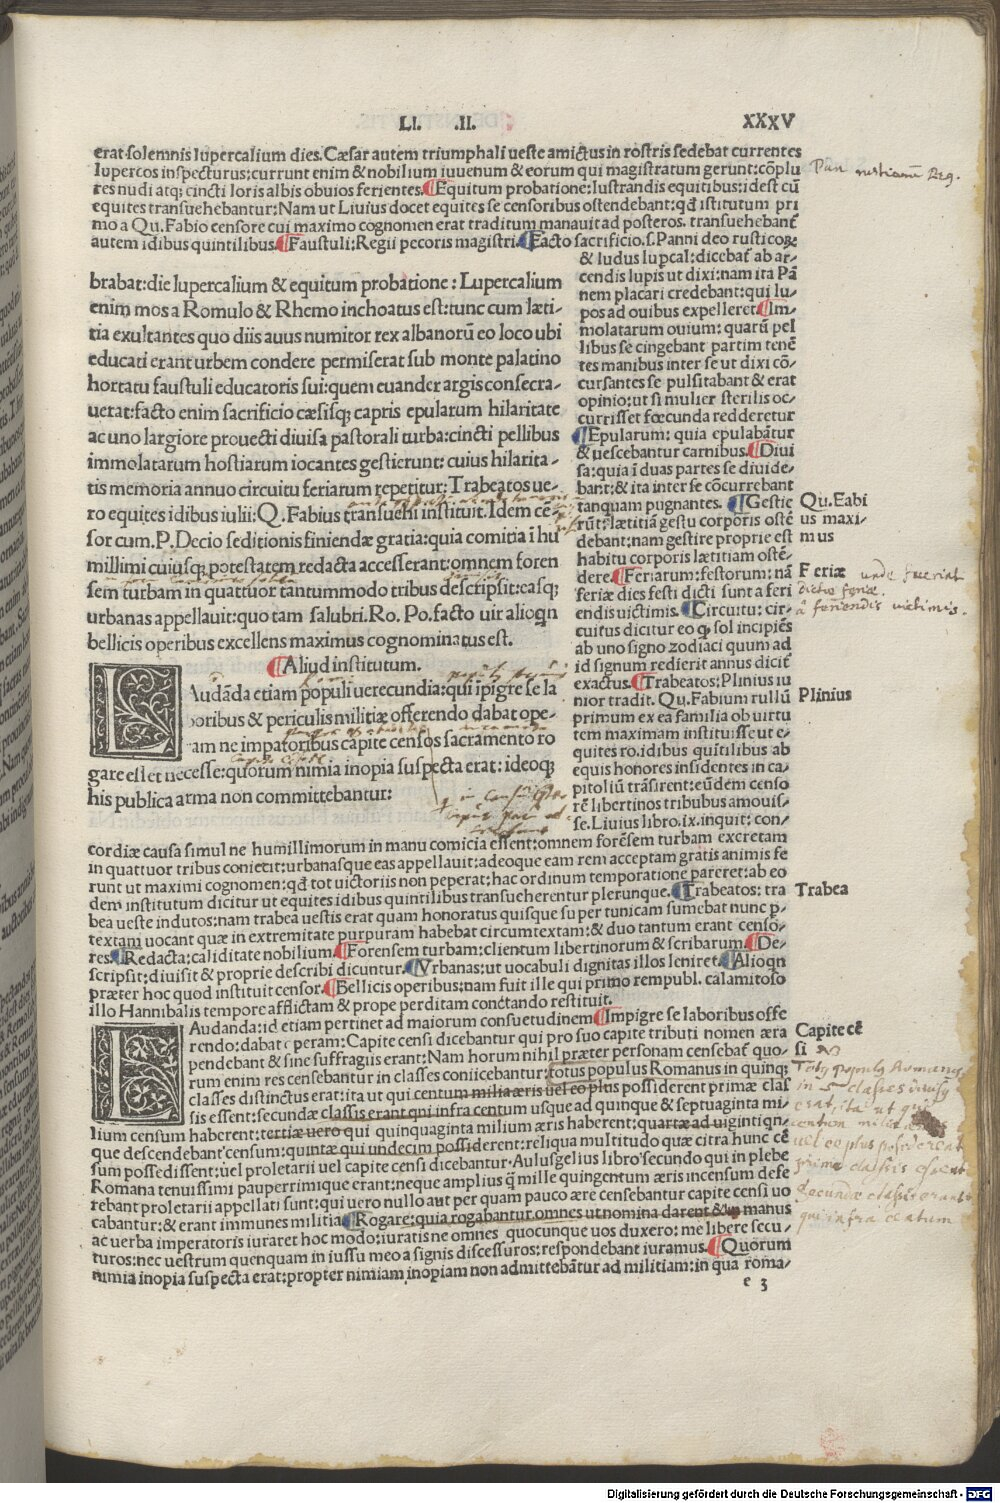 LI. .II. XXXV
erat solemnis lupercalium dies. Cæsar autem triumphali ueste amictus in rostris sedebat currentes
lupercos inspecturus: currunt enim & nobilium iuuenum & eorum qui magistratum gerunt: cōplu
res nudi atq; cincti loris albis obuios ferientes. ¶Equitum probatione: lustrandis equitibus: idest cū
equites transuehebantur: Nam ut Liuius docet equites se censoribus ostendebant: qđ istitutum pri
mo a Qu. Fabio censore cui maximo cognomen erat traditum manauit ad posteros. transuehebant̄
autem idibus quintilibus. ¶Faustuli: Regii pecoris magistri. ¶Facto sacrificio. s. Panni deo rusticoꝝ
brabat: die lupercalium & equitum probatione: Lupercalium
enim mos a Romulo & Rhemo inchoatus est: tunc cum læti-
tia exultantes quo diis auus numitor rex albanorū eo loco ubi
educati erant urbem condere permiserat sub monte palatino
hortatu faustuli educatoris sui: quem euander argis consecra-
uerat: facto enim sacrificio cæsisq; capris epularum hilaritate
ac uno largiore prouecti diuisa pastorali turba: cincti pellibus
immolatarum hostiarum iocantes gestierunt: cuius hilarita-
tis memoria annuo circuitu feriarum repetitur: Trabeatos ue-
ro equites idibus iulii: Q. Fabius transuehi instituit. Idem cē-
sor cum. P. Decio seditionis finiendæ gratia: quia comitia ī hu
millimi cuiusq; potestatem redacta accesserant: omnem foren
sem turbam in quattuor tantummodo tribus descripsit: easq;
urbanas appellauit: quo tam salubri. Ro. Po. facto uir alioqn
bellicis operibus excellens maximus cognominatus est.
¶Aliud institutum.
LAudāda etiam populi uerecundia: qui īpigre se la
boribus & periculis militiæ offerendo dabat ope-
ram ne impatoribus capite censos sacramento ro
gare esset necesse: quorum nimia inopia suspecta erat: ideoq;
his publica arma non committebantur:
& ludus lupcal: dicebat̄ ab ar-
cendis lupis ut dixi: nam ita Pā
nem placari credebant: qui lu-
pos ad ouibus expelleret. ¶Im-
molatarum ouium: quarū pel
libus se cingebant partim tenē
tes manibus inter se ut dixi cō-
cursantes se pulsitabant & erat
opinio: ut si mulier sterilis oc-
currisset fœcunda redderetur
¶Epularum: quia epulabātur
& uescebantur carnibus. ¶Diui
sa: quia ī duas partes se diuide-
bant: & ita inter se cōcurrebant
tanquam pugnantes. ¶Gestie
rūt: lætitiā gestu corporis ostē
debant: nam gestire proprie est
habitu corporis lætitiam ostē-
dere. ¶Feriarum: festorum: nā
feriæ dies festi dicti sunt a feri
endis uictimis. ¶Circuitu: cir-
cuitus dicitur eo ꝙ sol incipiēs
ab uno signo zodiaci quum ad
id signum redierit annus dicit̄
exactus. ¶Trabeatos: Plinius iu
nior tradit. Qu. Fabium rullū
primum ex ea familia ob uirtu
tem maximam instituisse ut e-
quites ro. idibus quītilibus ab
equis honores insidentes in ca-
pitoliū trāsirent: eūdem censo
rē libertinos tribubus amouis-
se. Liuius libro. ix. inquit: con-
cordiæ causa simul ne humillimorum in manu comicia essent: omnem forēsem turbam excretam
in quattuor tribus coniecit: urbanasque eas appellauit: adeoque eam rem acceptam gratis animis fe
runt ut maximi cognomen: qđ tot uictoriis non peperat: hac ordinum temporatione pareret: ab eo
dem institutum dicitur ut equites idibus quintilibus transueherentur plerunque. ¶Trabeatos: tra
bea ueste indutos: nam trabea uestis erat quam honoratus quisque super tunicam sumebat nunc p-
textam uocant quæ in extremitate purpuram habebat circumtextam: & duo tantum erant censo-
res. ¶Redacta: caliditate nobilium. ¶Forensem turbam: clientum libertinorum & scribarum. ¶De-
scripsit: diuisit & proprie describi dicuntur. ¶Vrbanas: ut uocabuli dignitas illos leniret. ¶Alioqn
præter hoc quod instituit censor. ¶Bellicis operibus: nam fuit ille qui primo rempubl. calamitoso
illo Hannibalis tempore afflictam & prope perditam conctando restituit.
LAudanda: id etiam pertinet ad maiorum consuetudinem ¶Impigre se laboribus offe
rendo: dabat operam: Capite censi dicebantur qui pro suo capite tributi nomen æra
pendebant & sine suffragiis erant: Nam horum nihil præter personam censebat̄ quo-
rum enim res censebantur in classes coniicebantur: totus populus Romanus in quinq;
classes distinctus erat: ita ut qui centum milia æris uel eo plus possiderent primæ clas
sis essent: secundæ classis erant qui infra centum usque ad quinque & septuaginta mi-
lium censum haberent: tertiæ uero qui quinquaginta milium æris haberent: quartæ ad uigintiqn-
que descendebant censum: quintæ qui undecim possiderent: reliqua multitudo quæ citra hunc cē
sum possedissent: uel proletarii uel capite censi dicebantur. Aulusgelius libro secundo qui in plebe
Romana tenuissimi pauperrimique erant: neque amplius q̄ mille quingentum æris incensum defe
rebant proletarii appellati sunt: qui uero nullo aut per quam pauco ære censebantur capite censi uo
cabantur: & erant immunes militia. ¶Rogare: quia rogabantur omnes ut nomina darent & in manus
ac uerba imperatoris iuraret hoc modo: iuratis ne omnes quocunque uos duxero: me libere secu-
turos: nec uestrum quenquam in iussu meo a signis discessuros: respondebant iuramus. ¶Quorum
nimia inopia suspecta erat: propter nimiam inopiam non admittebātur ad militiam: in qua roma-
e 3
Qu. Fabi
us maxi-
mus
Feriæ unde fuerint
dictæ feriæ.
a feriendis victimis.
Plinius
Trabea
Capite cē
si
Totus populus Romanus
in 5 classes divisus
erat, ita ut qui
centum milia
uel eo plus possiderent
primæ classis essent
Secundæ classis erant
qui infra centum
Digitalisierung gefördert durch die Deutsche Forschungsgemeinschaft - DFG